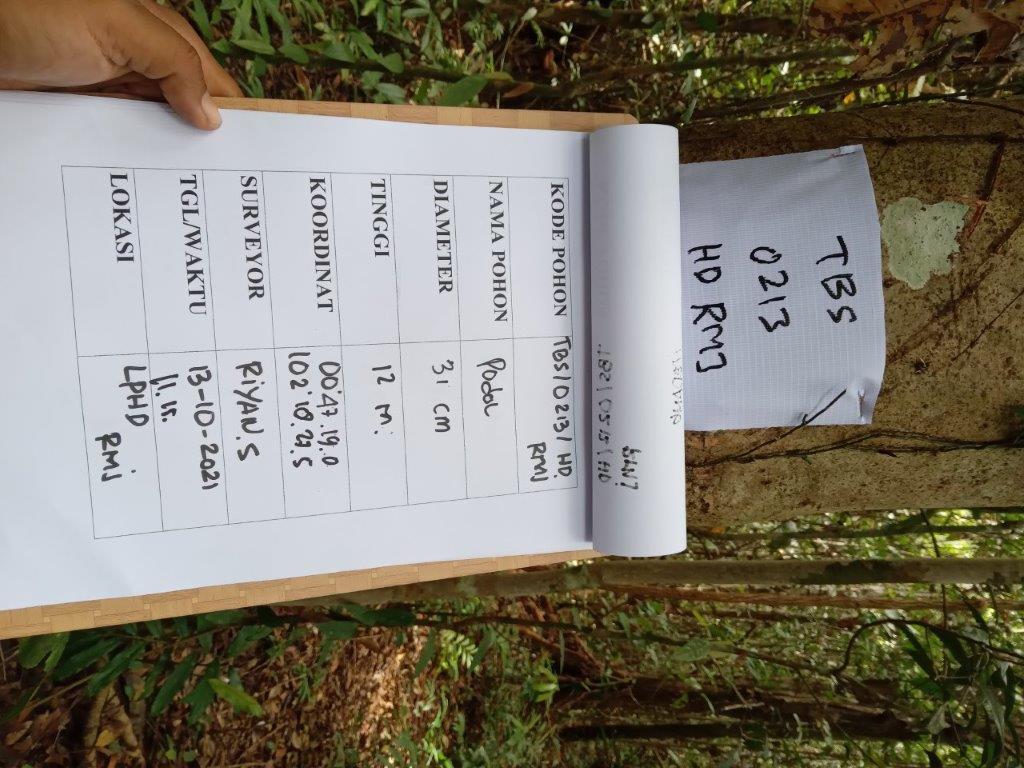 TBS
0213
HD RMJ
KODE POHON TBS/0213/ HD.
RMJ
NAMA POHON Podol
DIAMETER 31 cm
TINGGI 12 m.
KOORDINAT 00°47.19.0
102°18.27.5
SURVEYOR RiYAN.S
TGL/WAKTU 13-10-2021
11.15.
LOKASI LPHD
RMJ